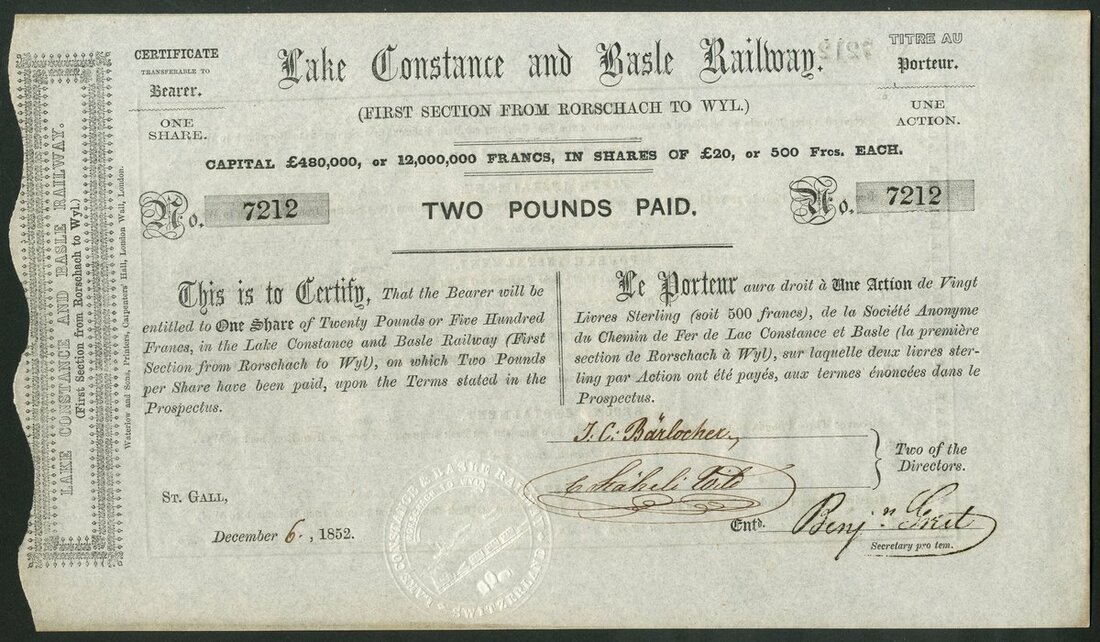 CERTIFICATE
TRANSFERABLE TO
Bearer.
ONE
SHARE.
Lake Constance and Basle Railway.
(FIRST SECTION FROM RORSCHACH TO WYL.)
TITRE AU
Porteur.
UNE
ACTION.
CAPITAL £480,000, or 12,000,000 FRANCS, IN SHARES OF £20, or 500 Frcs. EACH.
No. 7212
TWO POUNDS PAID.
No. 7212
This is to Certify, That the Bearer will be
entitled to One Share of Twenty Pounds or Five Hundred
Francs, in the Lake Constance and Basle Railway (First
Section from Rorschach to Wyl), on which Two Pounds
per Share have been paid, upon the Terms stated in the
Prospectus.
Le Porteur aura droit à Une Action de Vingt
Livres Sterling (soit 500 francs), de la Société Anonyme
du Chemin de Fer de Lac Constance et Basle (la première
section de Rorschach à Wyl), sur laquelle deux livres ster-
ling par Action ont été payés, aux termes énoncées dans le
Prospectus.
J. C. Bärlocher
Two of the
Directors.
St. Gall,
December 6., 1852.
Entd.
Benjn
Secretary pro tem.
LAKE CONSTANCE & BASLE RAILWAY
SWITZERLAND
LAKE CONSTANCE AND BASLE RAILWAY.
(First Section from Rorschach to Wyl.)
Waterlow and Sons, Printers, Carpenters' Hall, London Wall, London.
7212